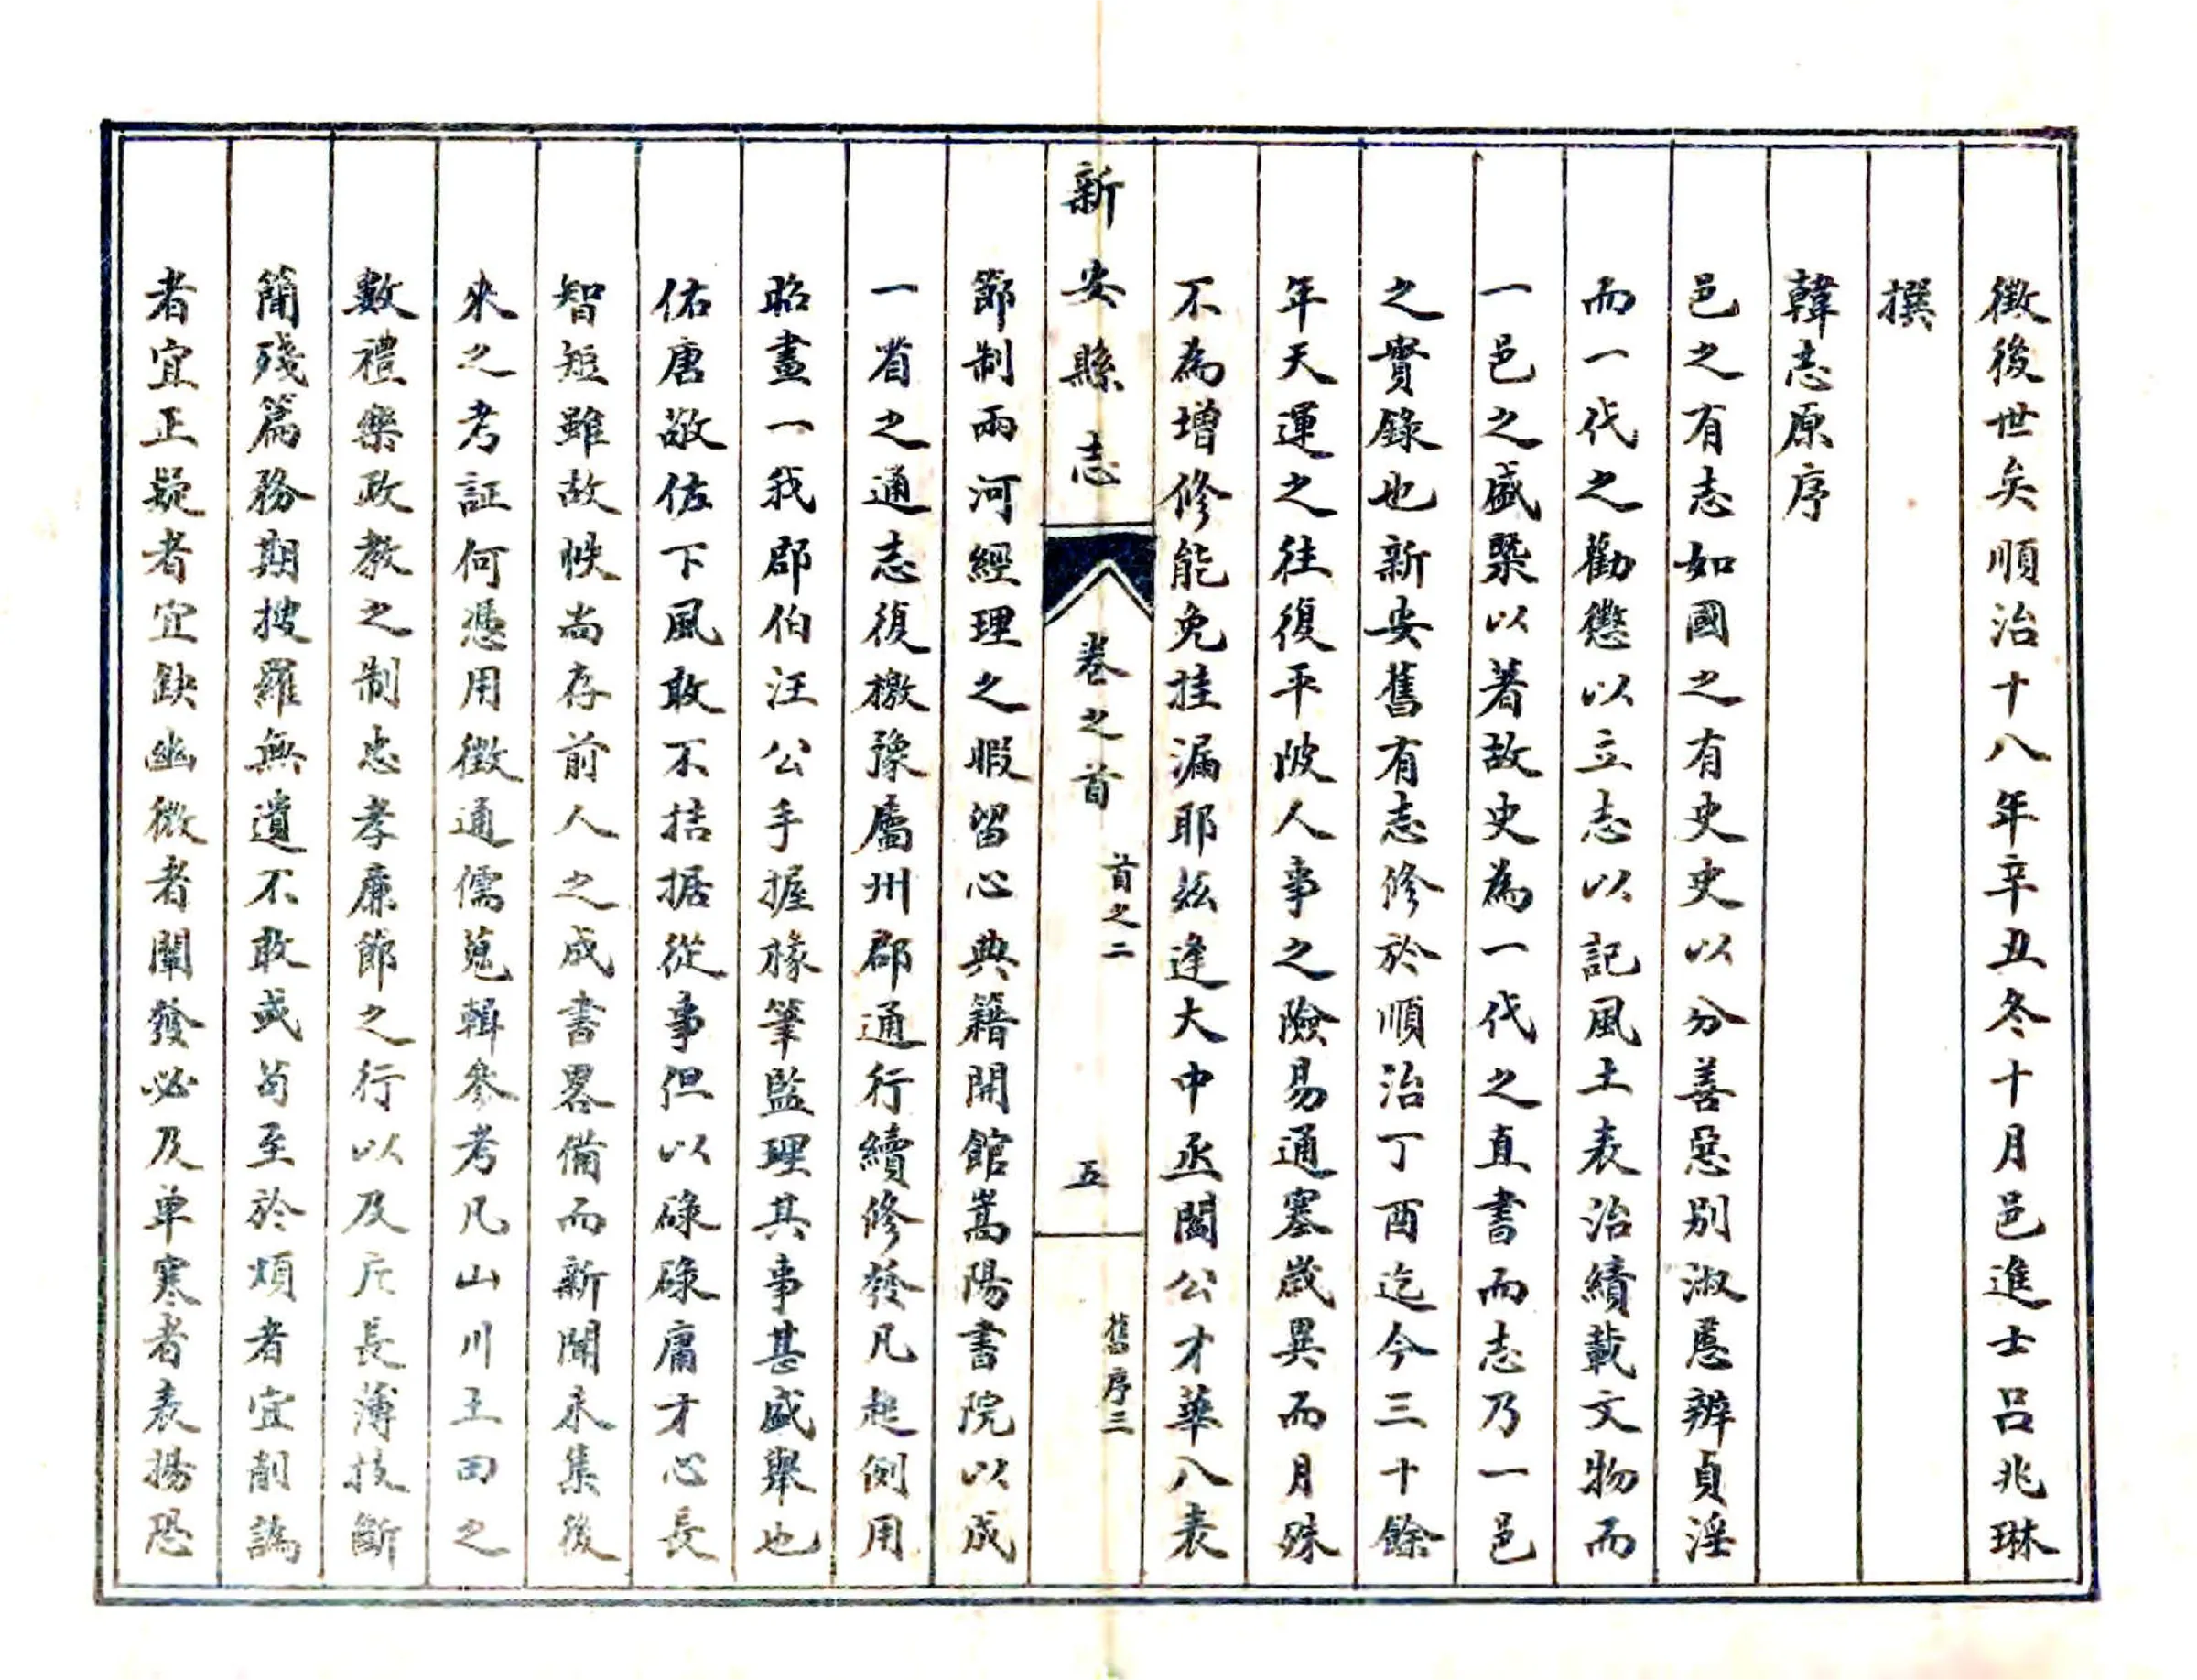 徵後世矣順治十八年辛丑冬十月邑進士呂兆琳
撰
韓志原序
邑之有志如國之有史史以分善惡別淑慝辨貞淫
而一代之勸懲以立志以記風土表治績載文物而
一邑之盛槩以著故史為一代之直書而志乃一邑
之實錄也新安舊有志修於順治丁酉迄今三十餘
年天運之往復平陂人事之險易通塞歲異而月殊
不為增修能免挂漏耶茲逢大中丞閻公才華八表
新安縣志
卷之首
首之二
五
舊序三
節制兩河經理之暇留心典籍開館嵩陽書院以成
一省之通志復檄豫屬州郡通行續修發凡起例用
昭畫一我郡伯汪公手握椽筆監理其事甚盛舉也
佑唐敬佐下風敢不拮据從事但以碌碌庸才心長
智短雖故帙尚存前人之成書畧備而新聞未集後
來之考証何憑用徵通儒蒐輯參考凡山川土田之
數禮樂政教之制忠孝廉節之行以及片長薄技斷
簡殘篇務期搜羅無遺不敢或苟至於煩者宜削譌
者宜正疑者宜缺幽微者闡發必及单寒者表揚恐